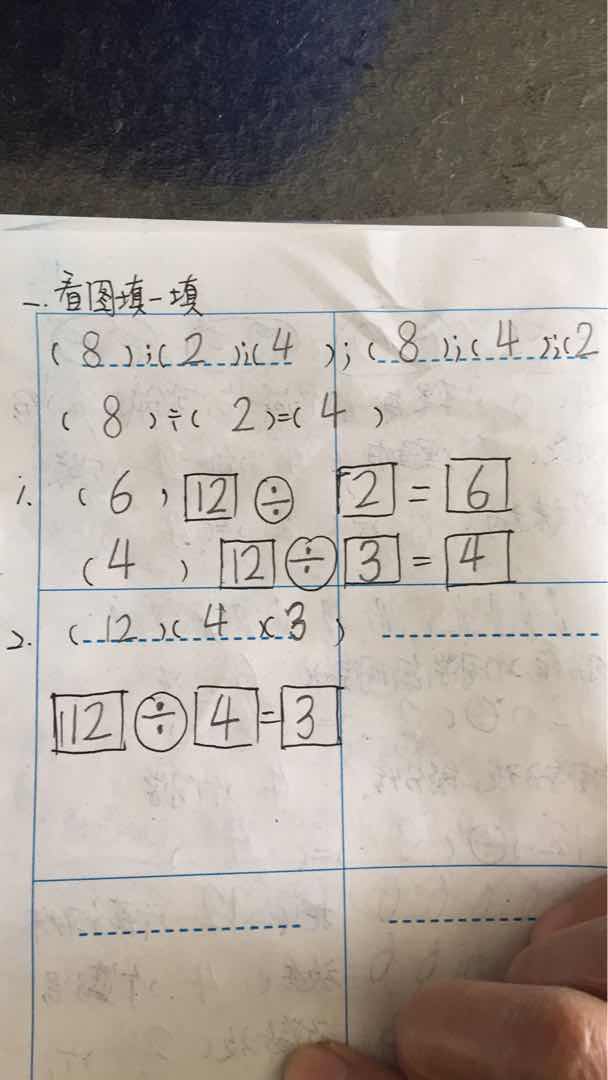 一.看图填一填
(8);(2);(4);(8);(4);(2
(8)÷(2)=(4)
1. (6) 12÷2=6
(4) 12÷3=4
2. (12)(4×3)
12÷4=3